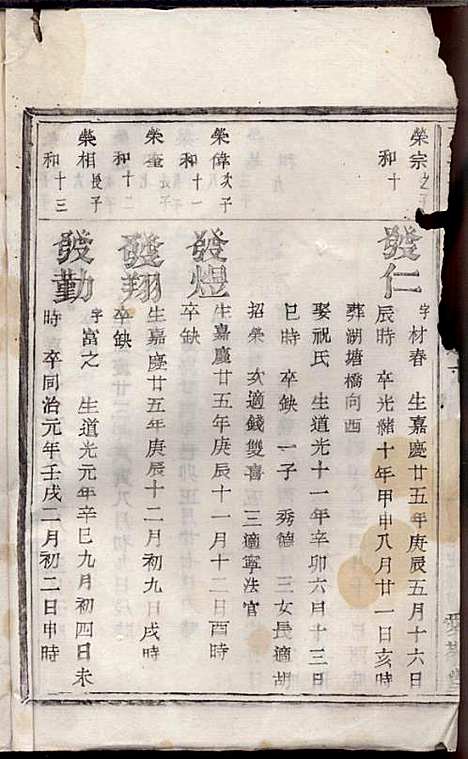 榮宗之子
和十
發仁
字材春 生嘉慶廿五年庚辰五月十六日
辰時 卒光緒十年甲申八月廿一日亥時
葬湖塘橋向西
娶祝氏 生道光十一年辛卯六月十三日
巳時 卒缺 一子 秀德 三女長適胡
招榮 次適錢雙喜 三適寧法官
榮偉次子
和十一
發煜
生嘉慶廿五年庚辰十一月十二日酉時
卒缺
榮奎
和十二
發翔
生嘉慶廿五年庚辰十二月初九日戌時
卒缺
榮相長子
和十三
發勤
字富之 生道光元年辛巳九月初四日未
時 卒同治元年壬戌二月初二日申時